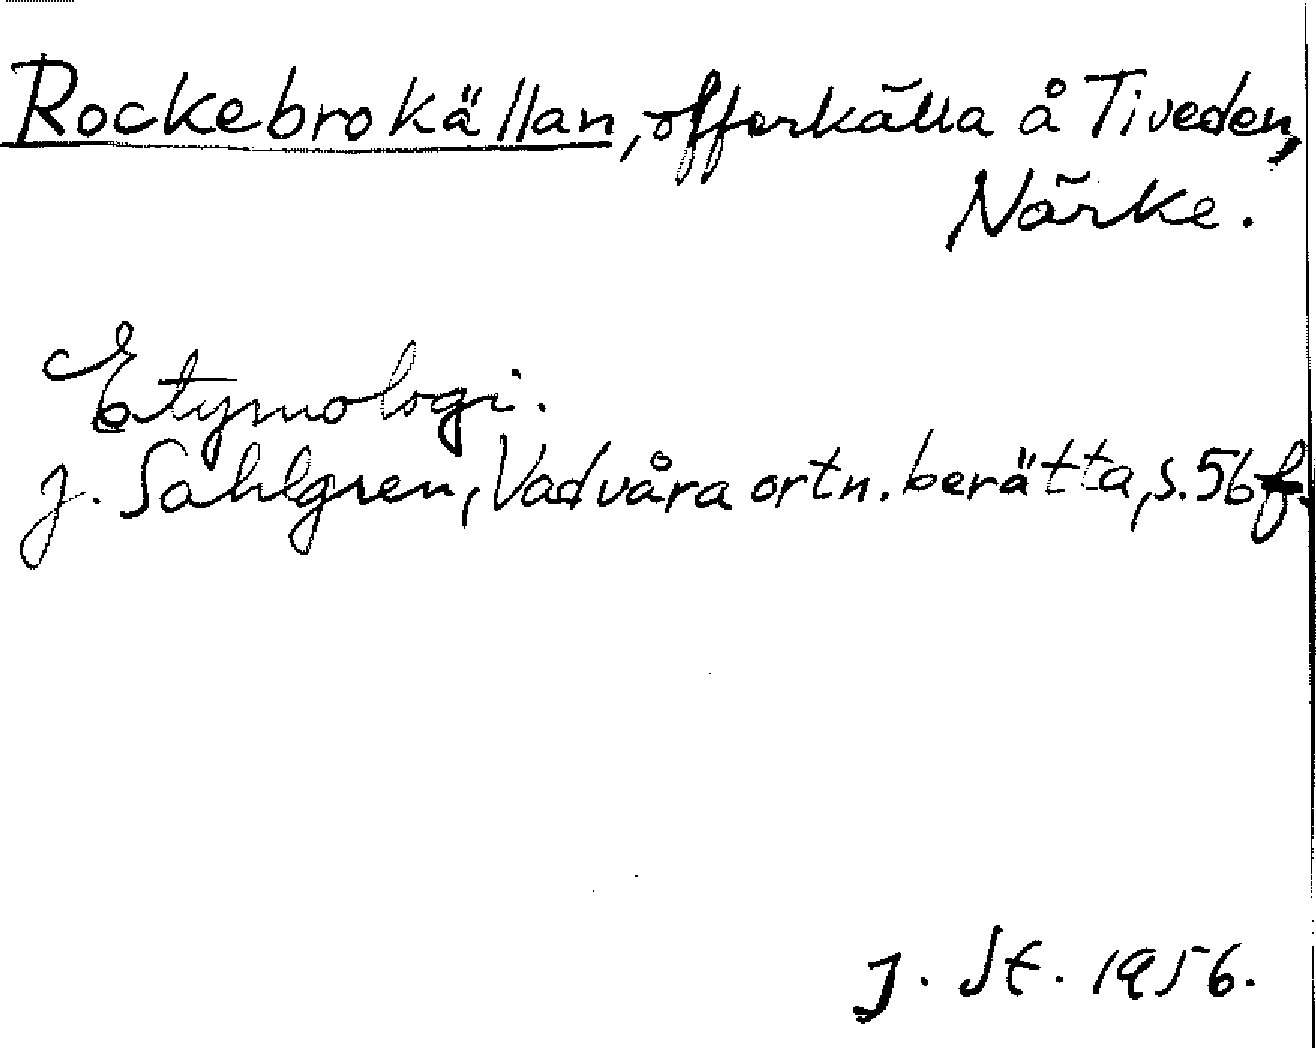 Rockebrokällan, offerkälla å Tiveden,
Närke.
Etymologi.
J. Sahlgren, Vad våra ortn. berätta, s. 56 f.
J. St. 1956.